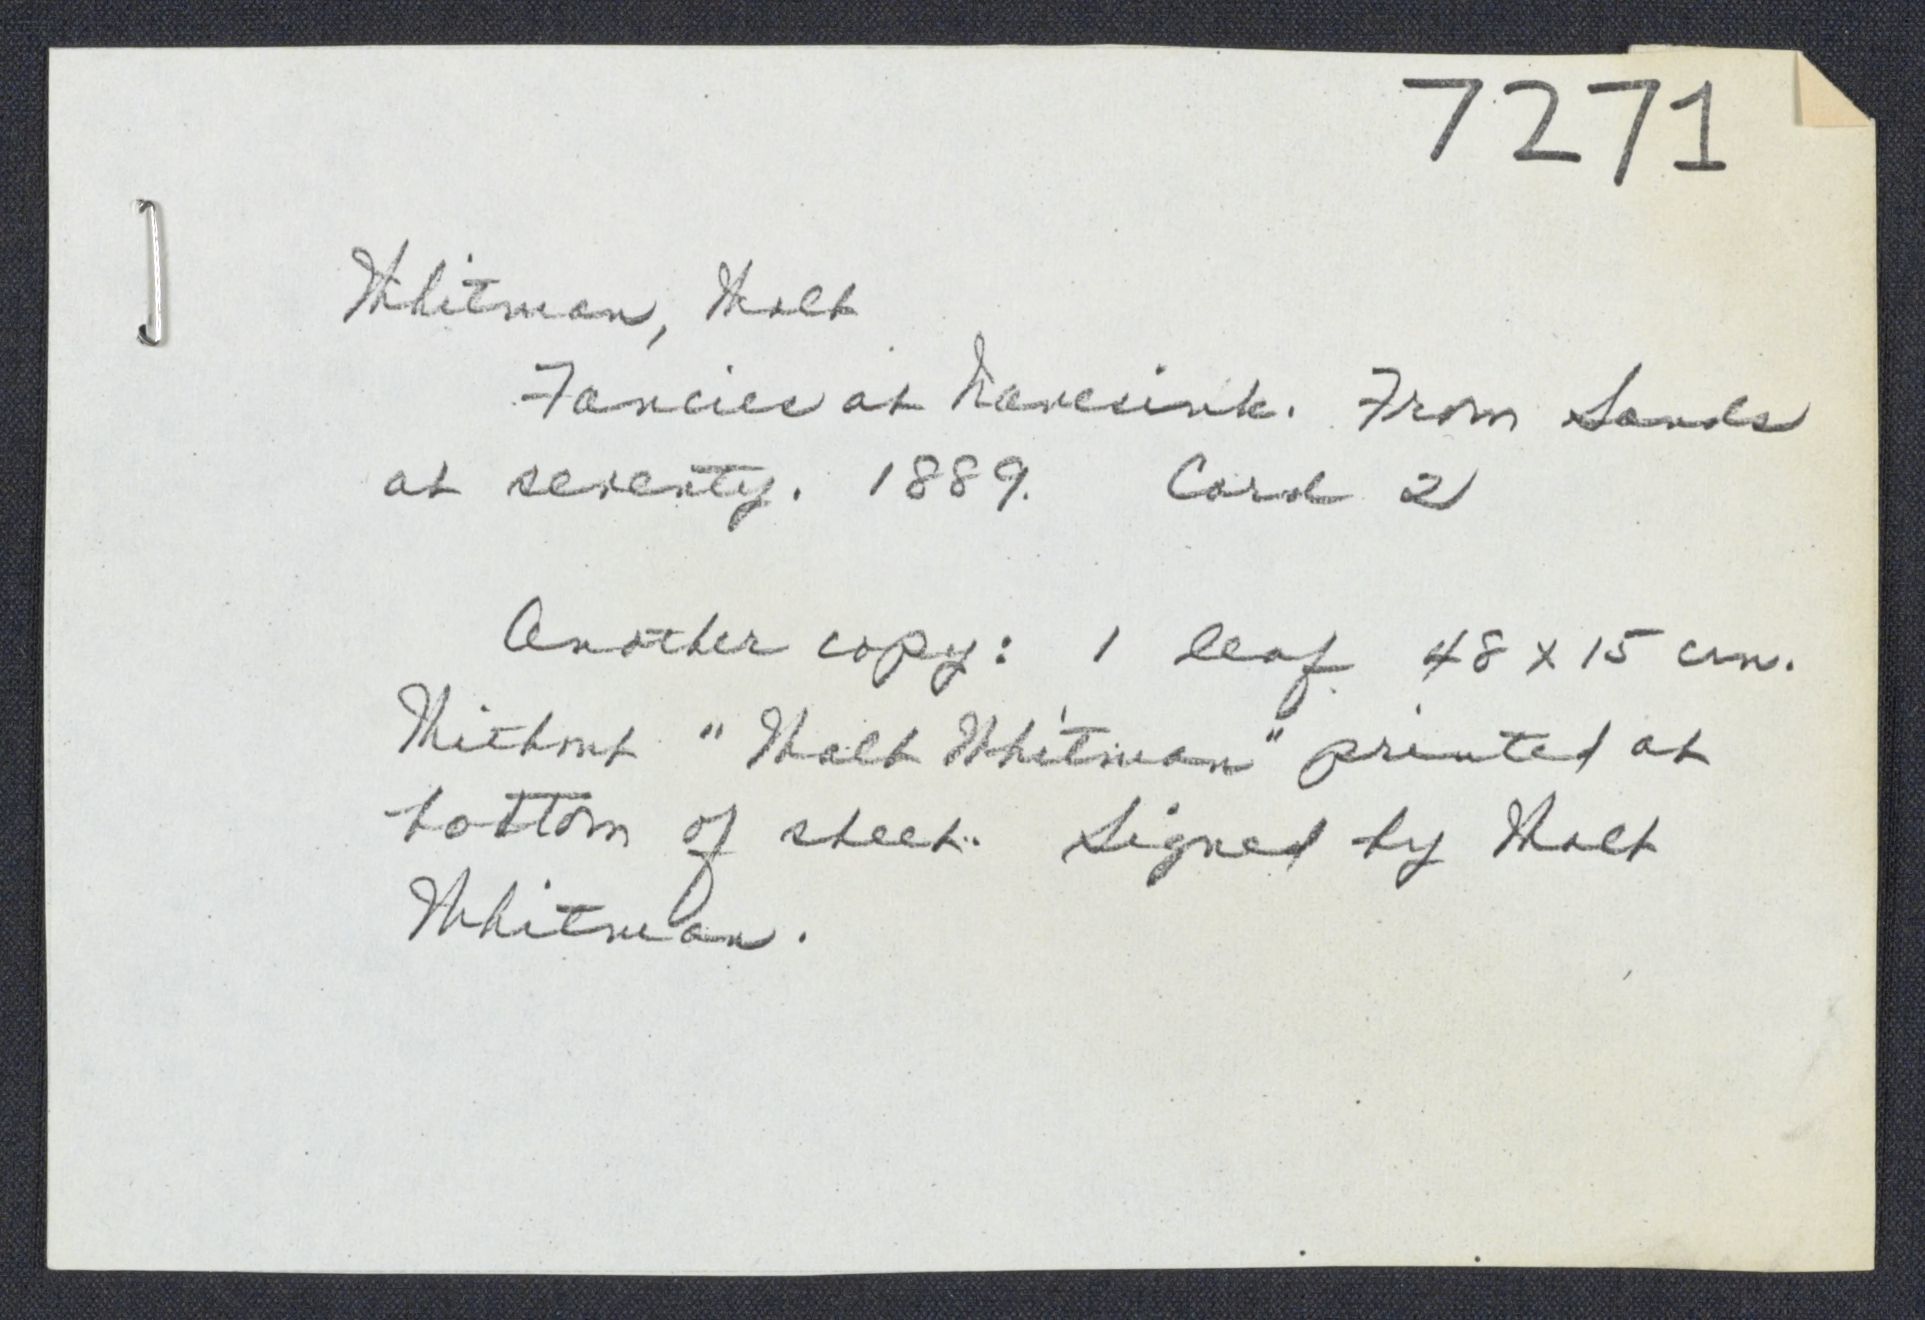 7271
Whitman, Walt
Fancies at Navesink. From Sands
at seventy. 1889. Card 2
Another copy: 1 leaf 48 x 15 cm.
Without "Walt Whitman" printed at
bottom of sheet. Signed by Walt
Whitman.